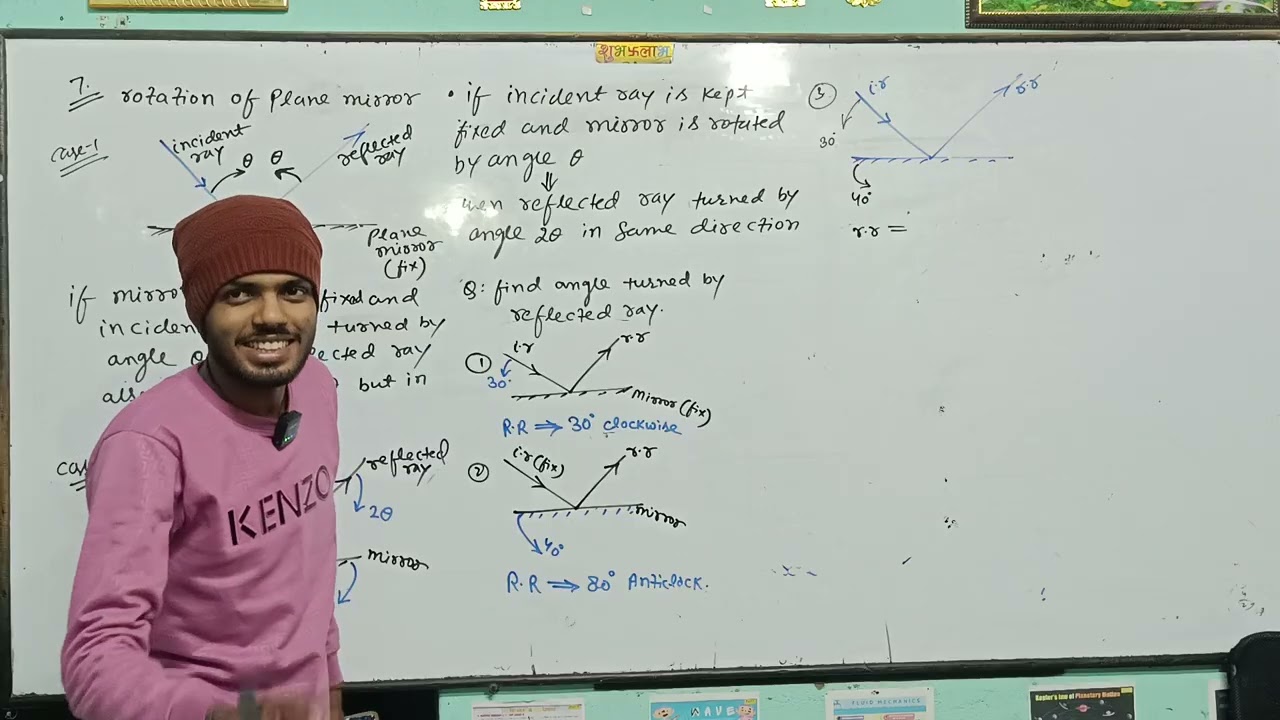 शुभ卐लाभ
7. rotation of Plane mirror
case-1
incident
ray
θ θ
reflected
ray
Plane
mirror
(fix)
if mirro fixed and
inciden turned by
angle ray
but in
reflected
ray
2θ
mirror
• if incident ray is kept
fixed and mirror is rotated
by angle θ
⇓
reflected ray turned by
angle 2θ in same direction
Q: find angle turned by
reflected ray.
① i.r r.r
30°
Mirror (fix)
R.R ⟹ 30° clockwise
② i.r (fix) r.r
mirror
40°
R.R ⟹ 80° Anticlock.
③ i.r r.r
30°
40°
r.r =
KENZO
WAVE
FLUID MECHANICS
Kepler's law of Planetary Motion